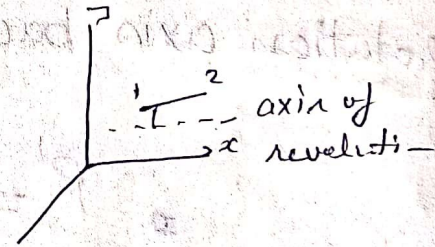 1 2
axis of
x revoluti-